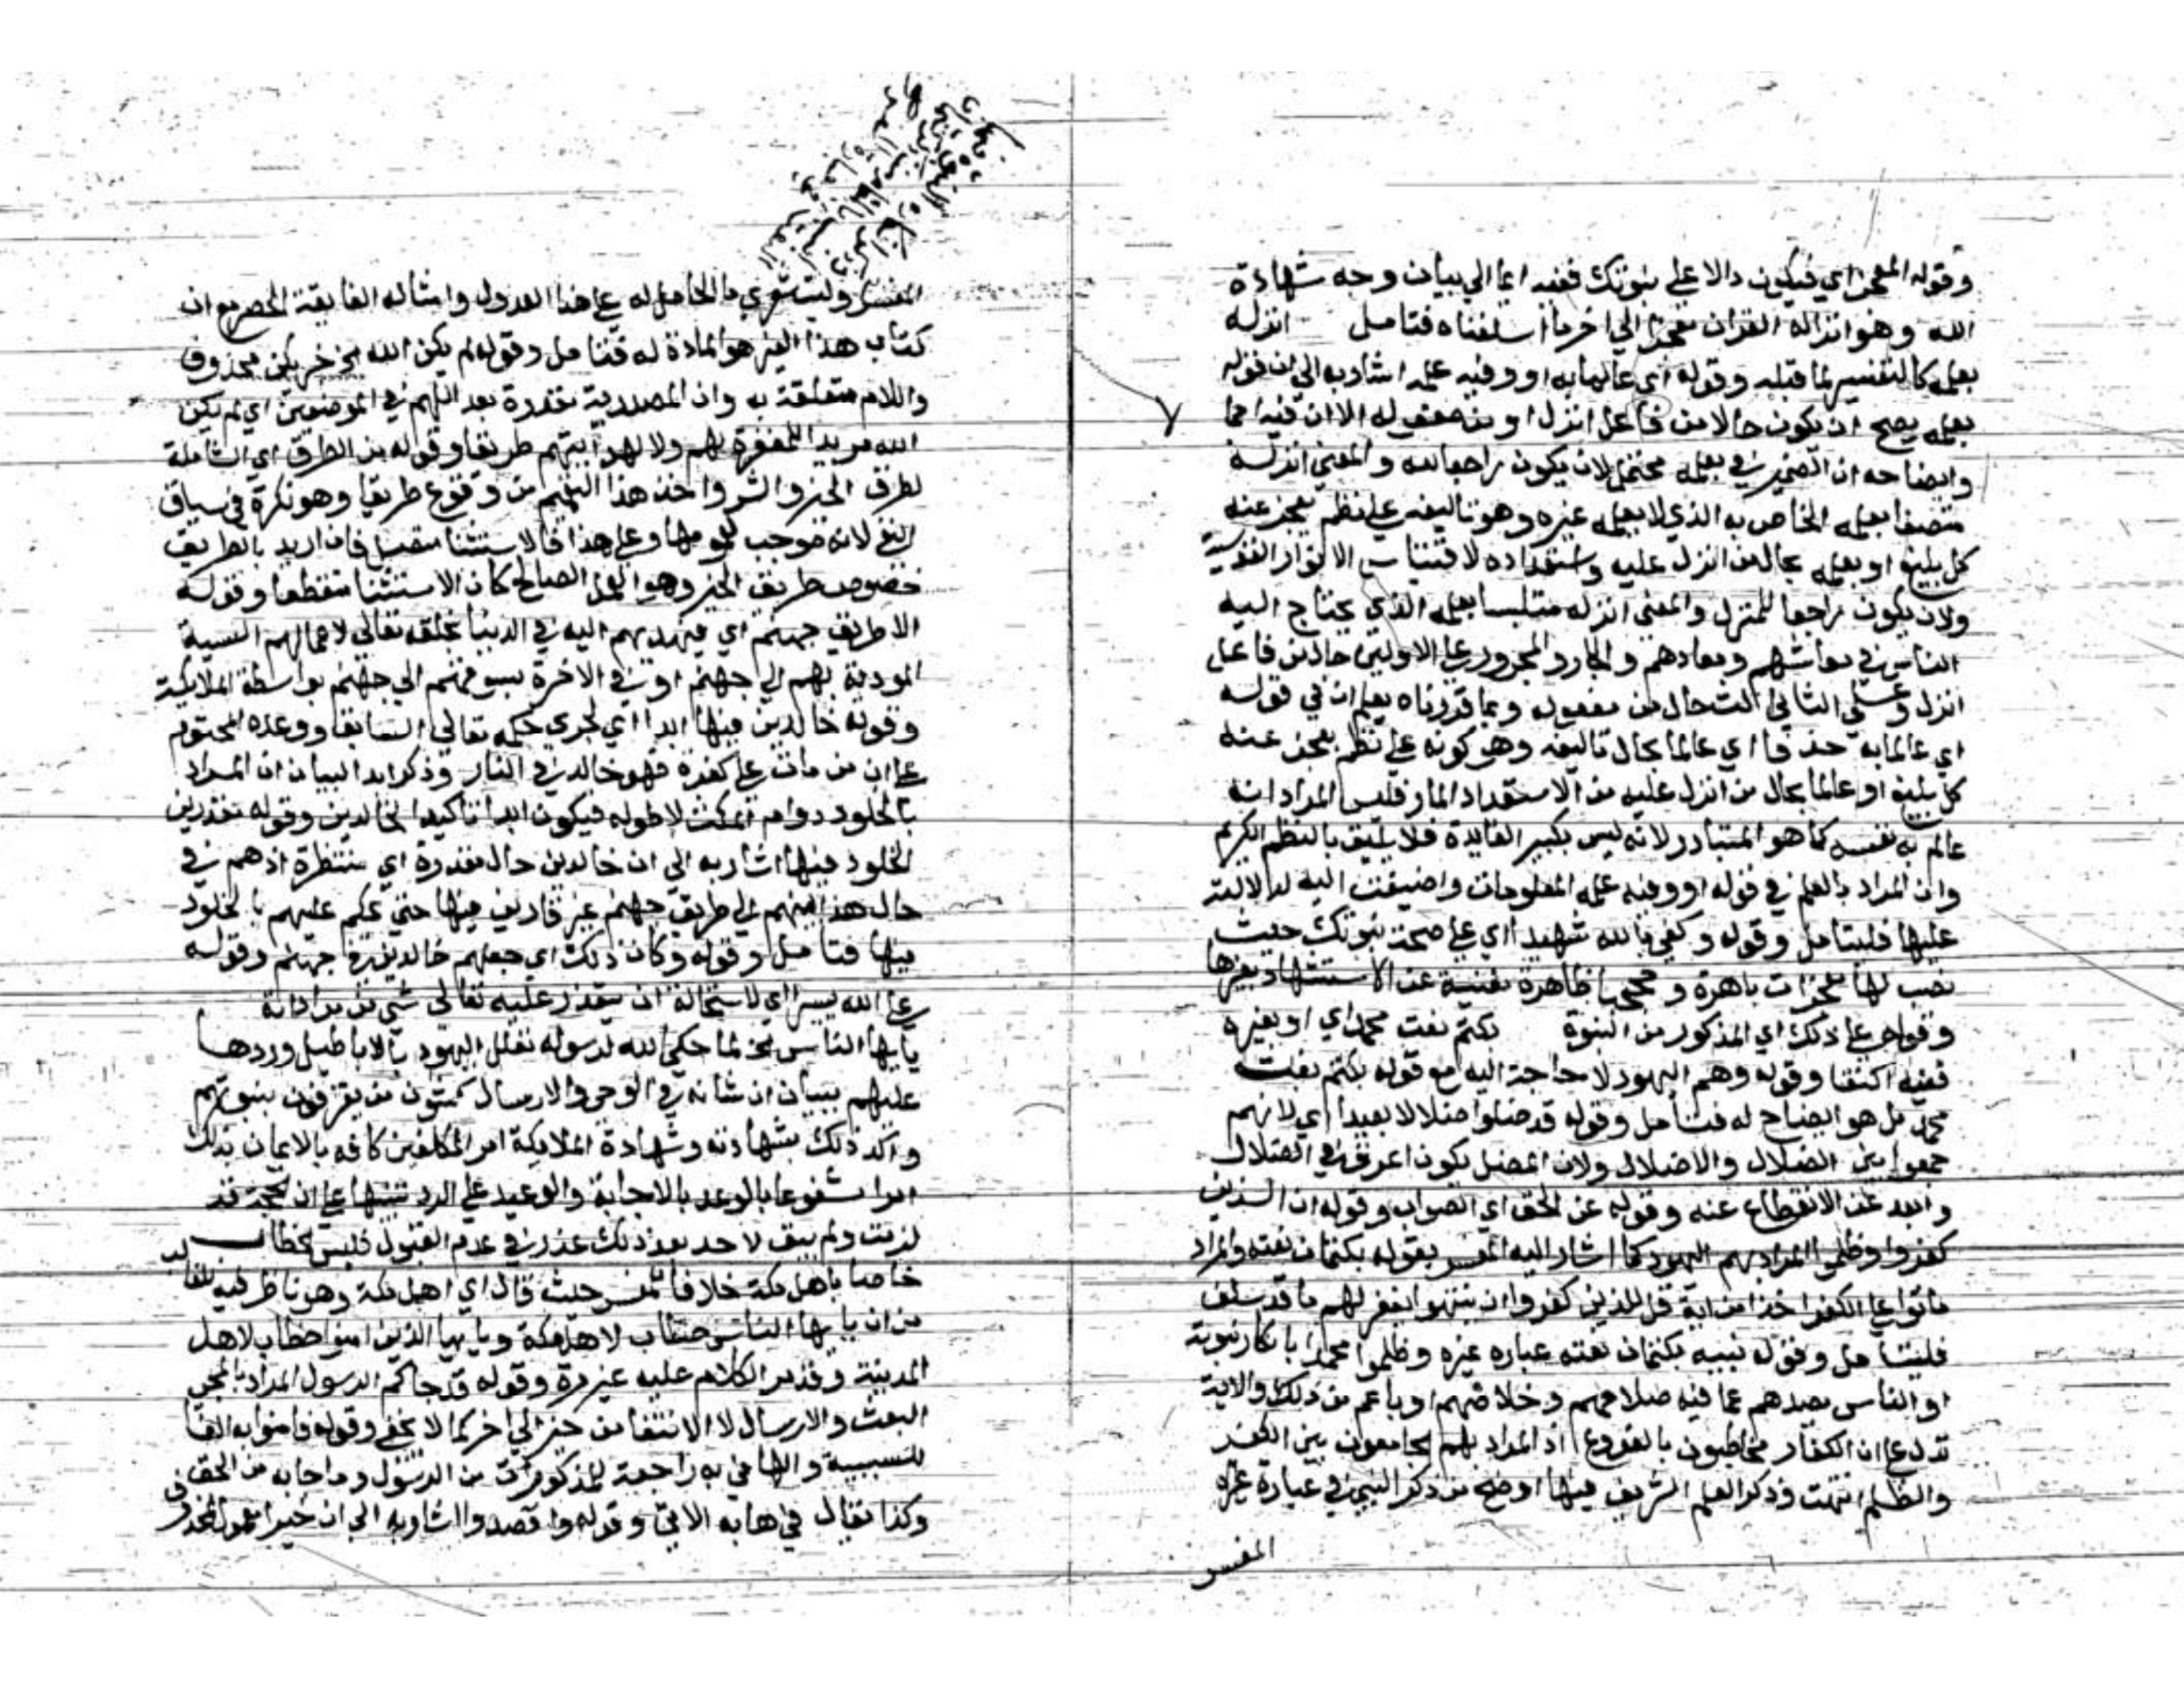 وقوله المعجز اي فيكون دالا على نبوتك ففيه ايما الي بيان وجه شهادة
الله وهو انزاله القران معجزا الي اخر ما اسلفناه فتامل انزله
بعلمه كالتفسير لما قبله وقوله اي عالما به او وفيه علمه اشار به الي ان قوله
بعلمه يصح ان يكون حالا من فاعل انزل او من مفعوله الا ان فيه
وايضاحه ان الضمير في بعلمه محتمل لان يكون راجعا لله والمعني انزله
متصفا بعلمه الخاص به الذي لا يعلمه غيره وهو تاليفه على نظم يعجز عنه
كل بليغ او بعلمه بحال من انزل عليه واستعداده لاقتباس الانوار القدسية
ولان يكون راجعا للمنزل والمعنى انزله متلبسا بعلمه الذي يحتاج اليه
الناس في معاشهم ومعادهم والجار والمجرور على الاولين حال من فاعل
انزل وعلى الثالث حال من مفعوله وبما قدرناه يعلم ان في قوله
اي عالما به حذفا اي عالما بحال تاليفه وهو كونه على نظم يعجز عنه
كل بليغ او عالما بحال من انزل عليه من الاستعداد المار فليس المراد انه
عالم به نفسه كما هو المتبادر لانه ليس بكبير الفايدة فلا يليق بالنظم الكريم
وان المراد بالعلم في قوله او وفيه علمه المعلومات واضيفت اليه لدلالته
عليها فليتامل وقوله وكفي بالله شهيدا اي على صحة نبوتك حيث
نصب لها معجزات باهرة وحججا ظاهرة مغنية عن الاستشهاد بغيرها
وقوله على ذلك اي المذكور من النبوة بكتم نعت محمد اي او بغيره
ففيه اكتفا وقوله وهم اليهود لا حاجة اليه مع قوله بكتم نعت
محمد بل هو ايضاح له فتامل وقوله قد ضلوا ضلالا بعيدا اي لانهم
جمعوا بين الضلال والاضلال ولان المضل يكون اعرق في الضلال
وابعد عن الانقطاع عنه وقوله عن الحق اي الصواب وقوله ان الذين
كفروا وظلموا المراد بهم اليهود كما اشار اليه المفسر بقوله بكتمان نعته والمراد
ماتوا على الكفر اخذا من اية قل للذين كفروا ان ينتهوا يغفر لهم ما قد سلف
فليتامل وقوله نبيه بكتمان نعته عباره غيره وظلموا محمدا بانكار نبوته
او الناس بصدهم عما فيه صلاحهم وخلاصهم او باعم من ذلك والاية
تدل على ان الكفار مخاطبون بالفروع اذ المراد بهم الجامعون بين الكفر
والظلم انتهت وذكر العلم الشريف فيها اوضح من ذكر النبي في عبارة غيره
المفسر
المفسر وليت شعري ما الحامل له على هذا العدول وامثاله الفايقة الحصر مع ان
كتاب هذا الغير هو المادة له فتامل وقوله لم يكن الله الخ خبر يكن محذوف
واللام متعلقة به وان المصدرية مقدرة بعد اللام في الموضعين اي لم يكن
الله مريدا للمغفرة لهم ولا لهدايتهم طريقا وقوله من الطرق اي الشاملة
لطرق الخير والشر واخذ هذا التعميم من وقوع طريقا وهو نكرة في سياق
النفي لانه موجب لعمومها وعلى هذا فالاستثنا متصل فان اريد بالطريق
خصوص طريق الخير وهو العمل الصالح كان الاستثنا منقطعا وقوله
الا طريق جهنم اي فيهديهم اليه في الدنيا بخلقه تعالى لاعمالهم السيية
المودية بهم الي جهنم او في الاخرة بسوقهم الي جهنم بواسطة الملايكة
وقوله خالدين فيها ابدا اي لجري حكمه تعالي السابق ووعده المحتوم
على ان من مات على كفره فهو خالد في النار وذكر ابدا لبيان ان المراد
بالخلود دوام المكث لا طوله فيكون ابدا تاكيدا لخالدين وقوله مقدرين
الخلود فيها اشار به الي ان خالدين حال مقدرة اي منتظرة اذ هم في
حال هدايتهم الي طريق جهنم غير قارين فيها حتي يحكم عليهم بالخلود
فيها فتامل وقوله وكان ذلك اي جعلهم خالدين في جهنم وقوله
على الله يسيرا اي لاستحالة ان يتعذر عليه تعالى شي من مراداته
يايها الناس الخ لما حكي الله لرسوله تعلل اليهود بالاباطيل وردها
عليهم ببيان ان شانه في الوحي والارسال كشون من يعترفون بنبوتهم
واكد ذلك بشهادته وشهادة الملايكة امر المكلفين كافه بالايمان بذلك
امرا مشفوعا بالوعد بالاجابة والوعيد على الرد تنبيها على ان الحجة قد
لزمت ولم يبق لاحد بعد ذلك عذر في عدم القبول فليس الخطاب
خاصا باهل مكة خلافا للمفسر حيث قال اي اهل مكة وهو ناظر فيه للغالب
من ان يايها الناس خطاب لاهل مكة ويايها الذين امنوا خطاب لاهل
المدينة وقد مر الكلام عليه غير مرة وقوله قد جاكم الرسول المراد بالمجي
البعث والارسال لا الانتقال من حيز الي اخر كما لا يخفي وقوله فامنوا به الفا
للسببية والها في به راجعة للمذكورات من الرسول وما جا به من الحق
وكذا تقال في ها به الاتي وقوله واقصدوا اشار به الي ان خيرا معمول لمحذوف